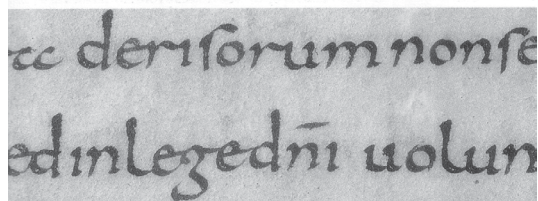 derisorum non se
ed in lege dnī uolun